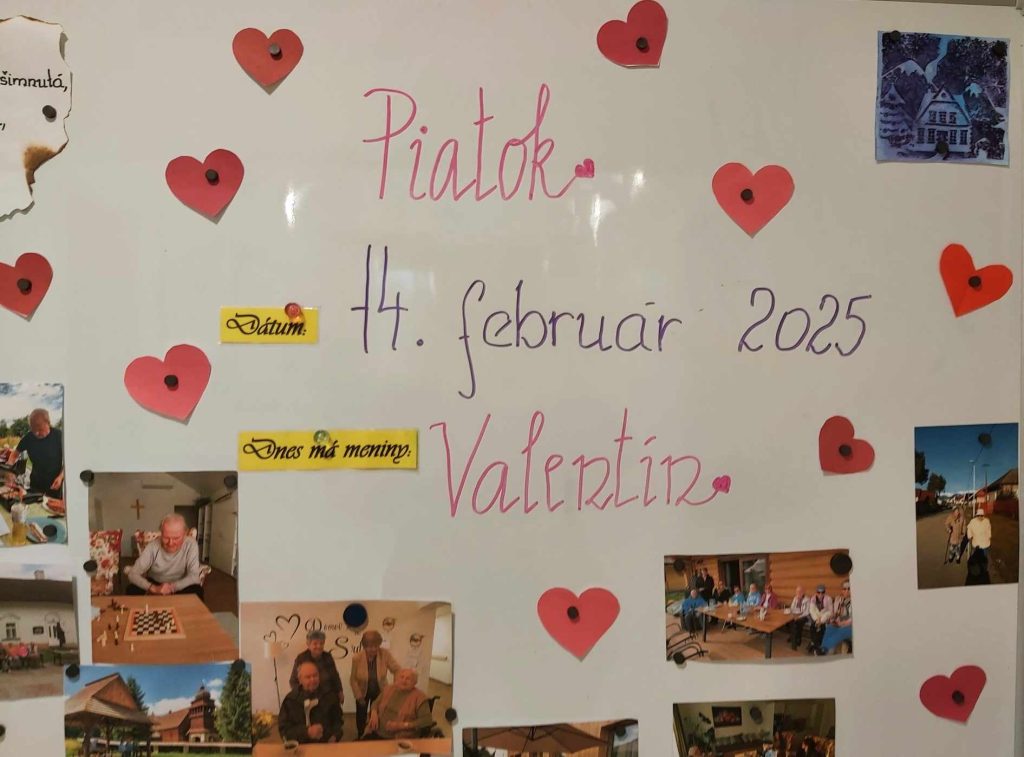 šimnutá,
Piatok
Dátum:
14. február 2025
Dnes má meniny:
Valentín